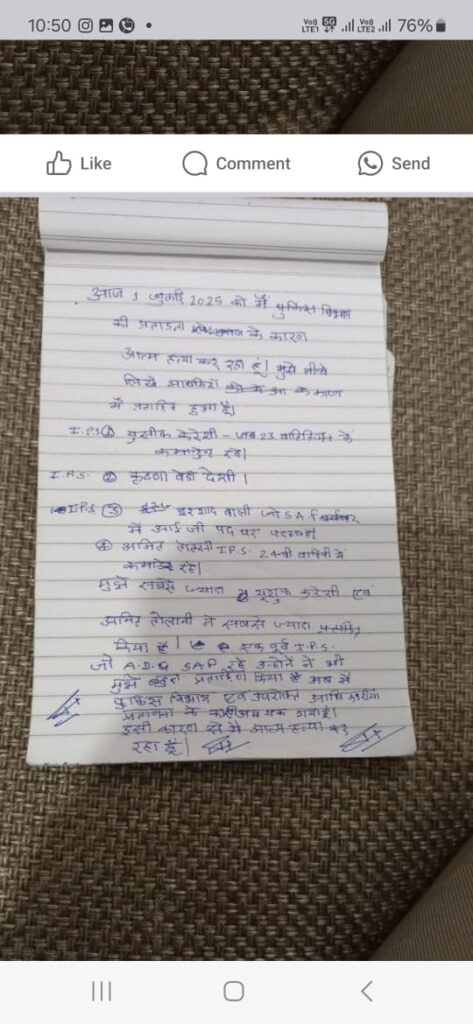 10:50
76%
Like
Comment
Send
आज 1 जुलाई 2025 को मैं पुलिस विभाग
की प्रताड़ता के कारण
आत्म हत्या कर रहा हूं। मुझे नीचे
लिखे के कारण
में प्रताड़ित हुआ है।
I.P.S ① युसुफ कुरेशी - जब 23 वाहिनी के
कमाडेंट रहे।
I.P.S. ② कृष्णा वेणी देशी।
I.P.S ③ इरशाद वाली जो SAF
में आई जी पद पर पदस्थ है।
④ अमित तोलानी I.P.S. 24वी वाहिनी के
कमाडेंट रहे।
मुझे सबसे ज्यादा युशुफ कुरेशी एवं
अमित तोलानी ने सबसे ज्यादा प्रताड़ित
किया है। एक पूर्व I.P.S.
जो A.D.G SAF रहे उन्होंने ने भी
मुझे बहुत प्रताड़ित किया है अब में
पुलिस विभाग एवं उपरोक्त
प्रताड़ना के कारण अब थक गया हूँ।
इसी कारण से में आत्म हत्या कर
रहा हूँ।